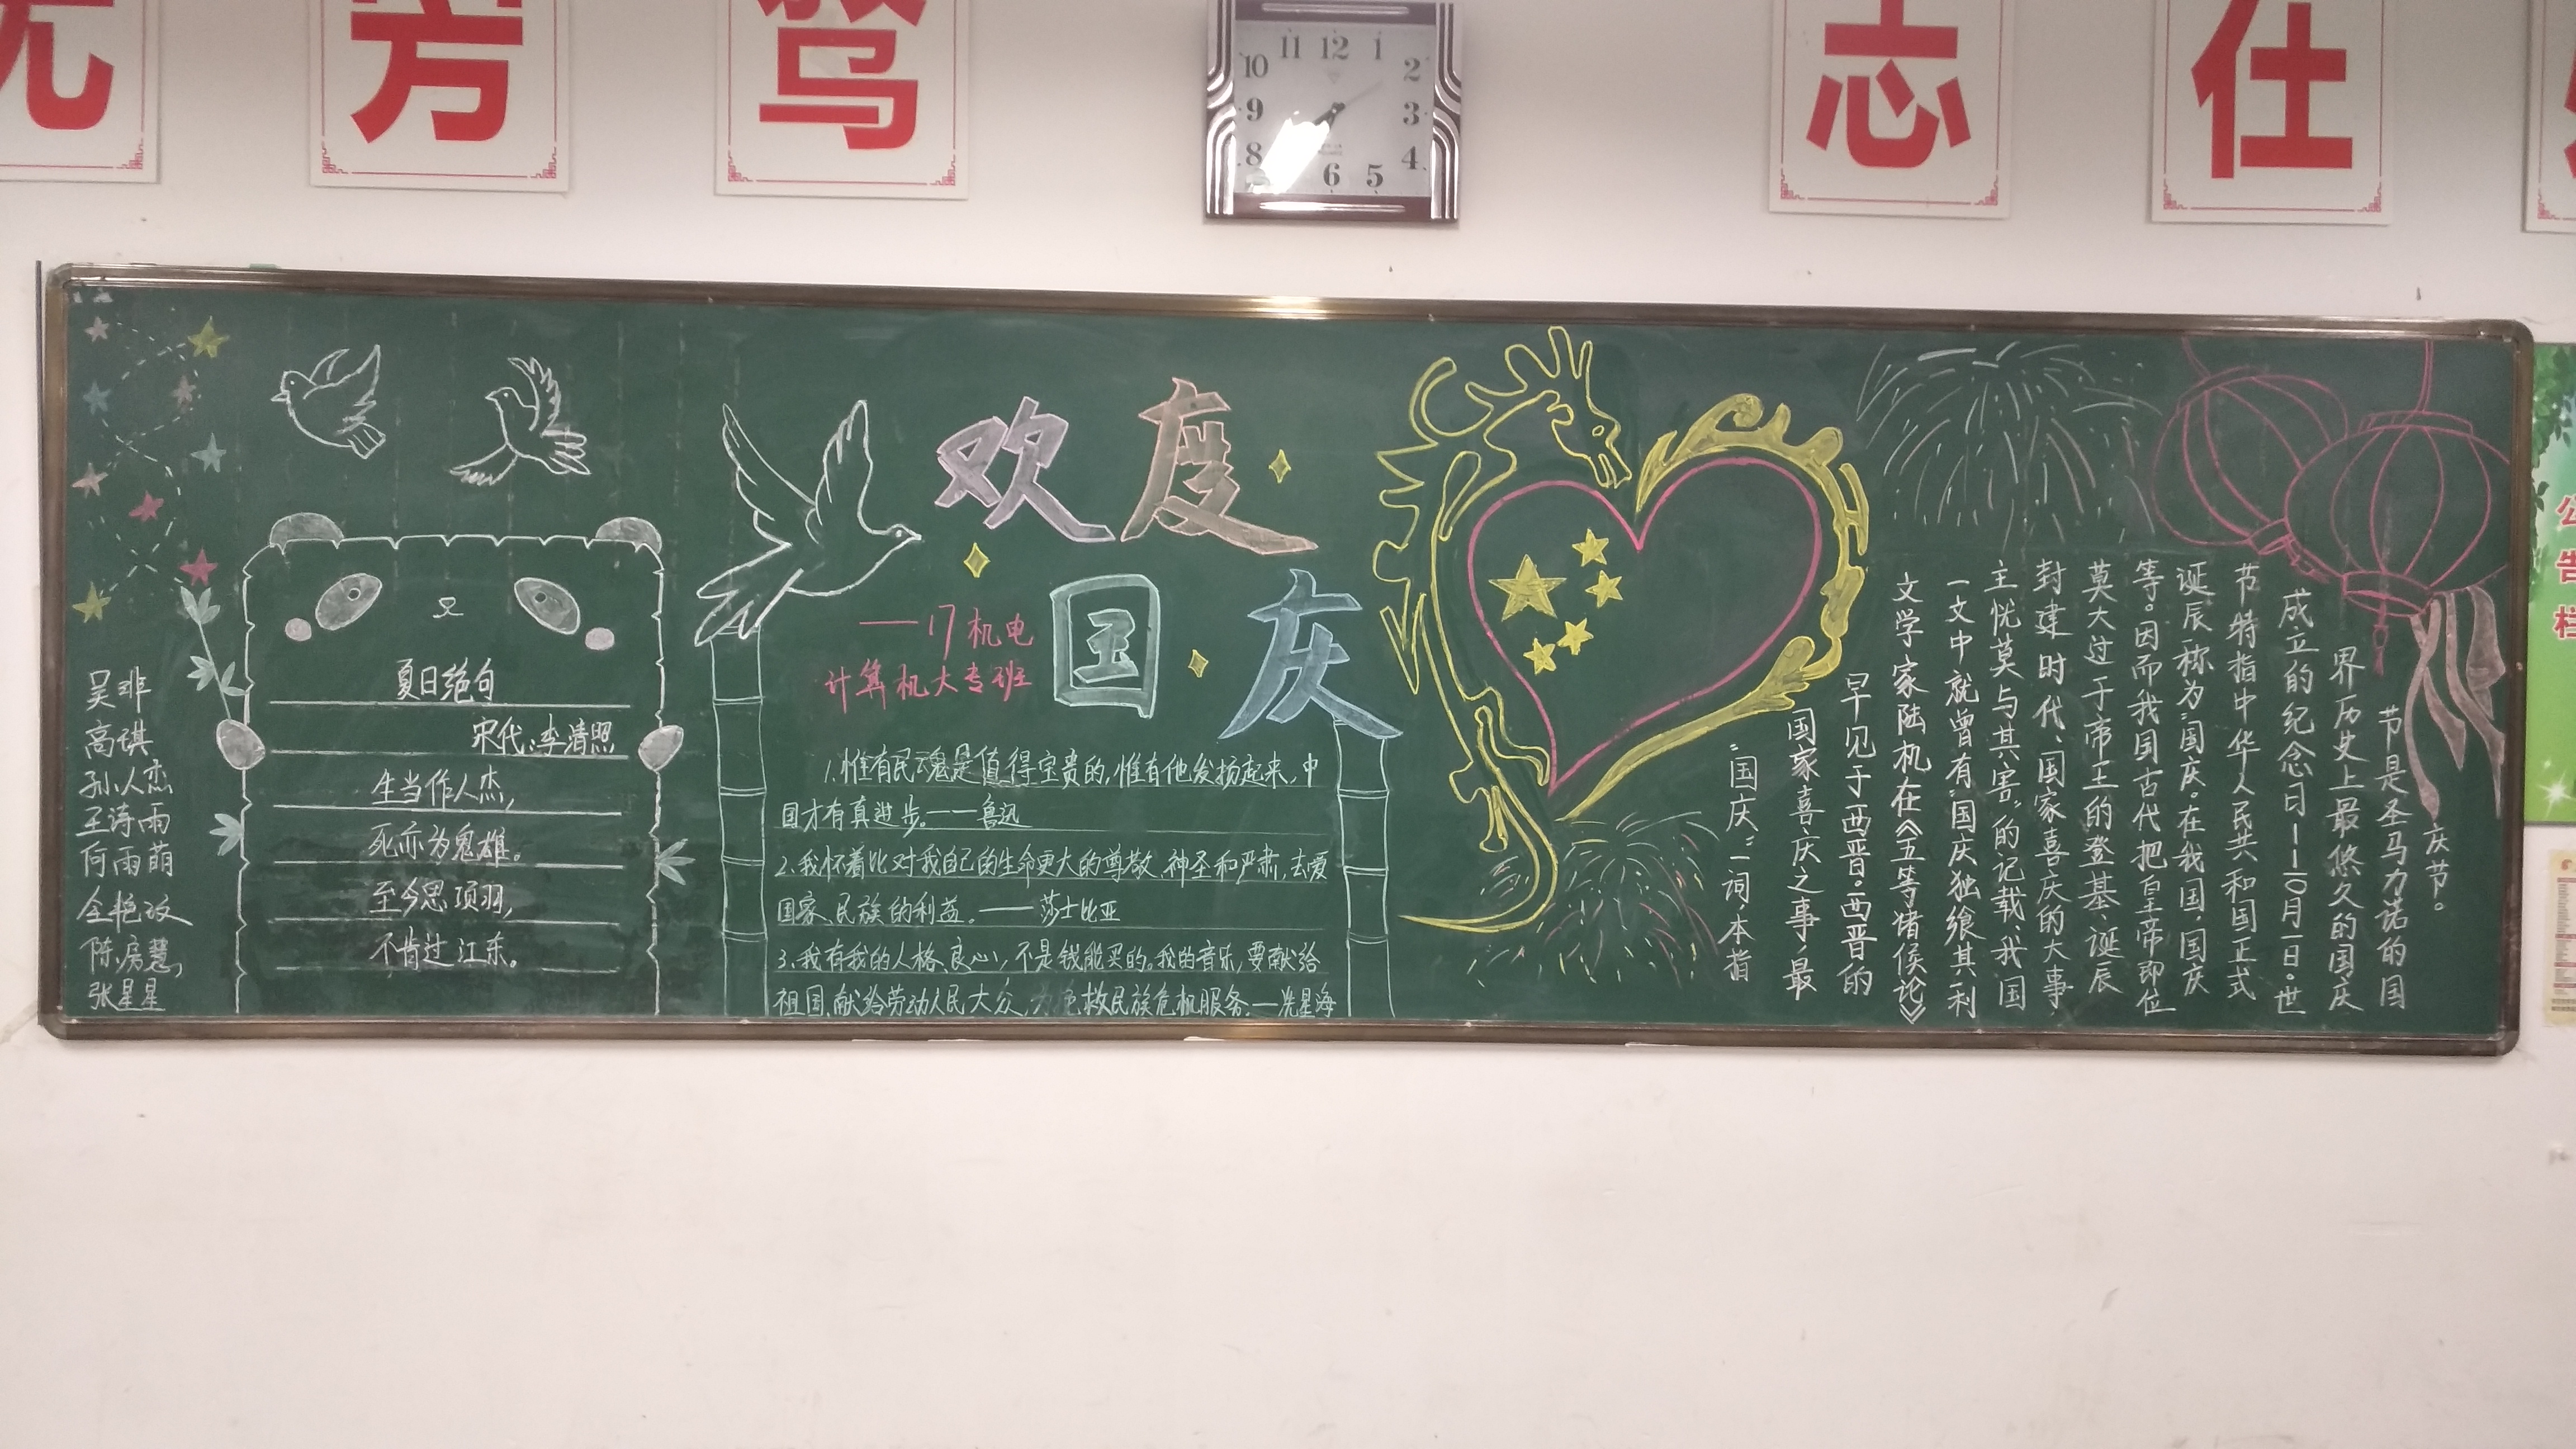 志
仕
11 12 1
10 2
9 3
8 4
6 5
公告栏
欢度
国庆
——17机电
计算机大专班
夏日绝句
宋代:李清照
生当作人杰,
死亦为鬼雄。
至今思项羽,
不肯过江东。
吴非
高琪
孙人杰
王诗雨
何雨萌
仝艳玟
陈房慧,
张星星
1.惟有民魂是值得宝贵的,惟有他发扬起来,中
国才有真进步。——鲁迅
2.我怀着比对我自己的生命更大的尊敬、神圣和严肃,去爱
国家、民族的利益。——莎士比亚
3.我有我的人格、良心,不是钱能买的。我的音乐,要献给
祖国,献给劳动人民大众,为挽救民族危机服务。—冼星海
“国庆”一词,本指
国家喜庆之事,最
早见于西晋。西晋的
文学家陆机在《五等诸侯论》
一文中就曾有“国庆独飨其利
主忧莫与其害”的记载、我国
封建时代、国家喜庆的大事,
莫大过于帝王的登基、诞辰
等。因而我国古代把皇帝即位
诞辰称为“国庆。在我国,国庆
节特指中华人民共和国正式
成立的纪念日——10月1日。世
界历史上最悠久的国庆
节是圣马力诺的国
庆节。